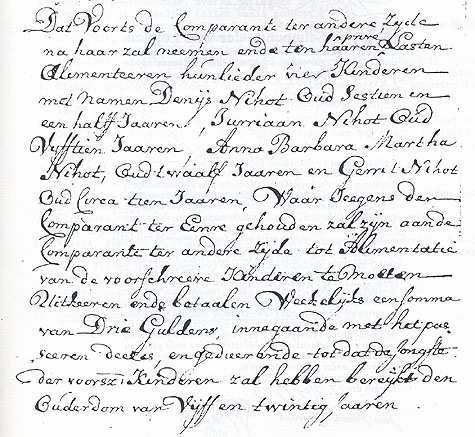 Dat Voorts de Comparante ter andere Zyde
na haar zal neemen ende ten haaren privé Lasten
Alimenteeren hunlieder vier Kinderen
met namen Denijs Nihot Oud Sestien en
een halff Jaaren, Jurriaan Nihot Oud
Vijfftien Jaaren, Anna Barbara Martha
Nihot, Oud twaalf Jaaren en Gerrit Nihot
Oud Circa tien Jaaren, Waar Jeegens den
Comparant ter Eenre gehouden zal zijn aan de
Comparante ter andere Zijde tot Alimentatie
van de voorschreeve Kinderen te moeten
Uitkeeren ende betaalen Weekelijks een somma
van Drie Guldens, innegaande met het pas-
seeren deeses, en geduerende tot dat de Jongste
der voorsz: Kinderen zal hebben bereijkt den
Ouderdom van Vijff en twintig Jaaren